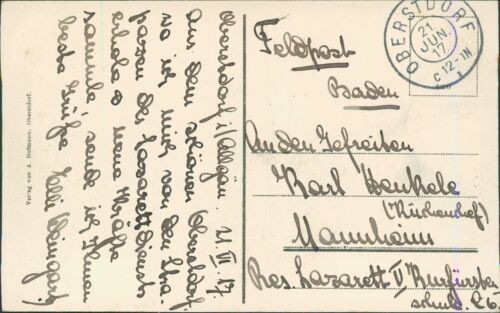 Oberstdorf i/Allgäu. 21. VI. 17.
Aus dem schönen Oberstdorf,
wo ich mich von den Stra-
pazen des Lazarettdienst
erhole & neue Kräfte
sammle, sende ich Ihnen
beste Grüße
Verlag von A. Hofmann, Oberstdorf.
OBERSTDORF
21
JUN.
17
Feldpost
Baden
An den Gefreiten
Karl Henkele
Mannheim
Res. Lazarett V Kurfürsten-
schule. C6.